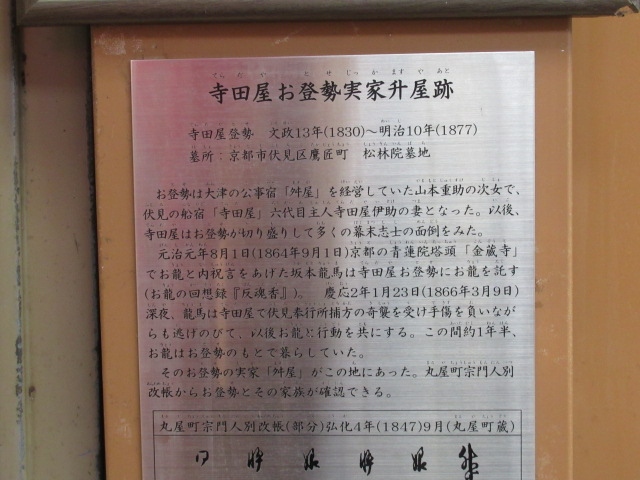 寺田屋お登勢実家升屋跡
寺田屋登勢　文政13年(1830)～明治10年(1877)
墓所：京都市伏見区鷹匠町　松林院墓地
お登勢は大津の公事宿「舛屋」を経営していた山本重助の次女で、
伏見の船宿「寺田屋」六代目主人寺田屋伊助の妻となった。以後、
寺田屋はお登勢が切り盛りして多くの幕末志士の面倒をみた。
元治元年8月1日(1864年9月1日)京都の青蓮院塔頭「金蔵寺」
でお龍と内祝言をあげた坂本龍馬は寺田屋お登勢にお龍を託す
(お龍の回想録『反魂香』)。　慶応2年1月23日(1866年3月9日)
深夜、龍馬は寺田屋で伏見奉行所捕方の奇襲を受け手傷を負いなが
らも逃げのびて、以後お龍と行動を共にする。この間約1年半、
お龍はお登勢のもとで暮らしていた。
そのお登勢の実家「舛屋」がこの地にあった。丸屋町宗門人別
改帳からお登勢とその家族が確認できる。
丸屋町宗門人別改帳(部分)弘化4年(1847)9月(丸屋町蔵)